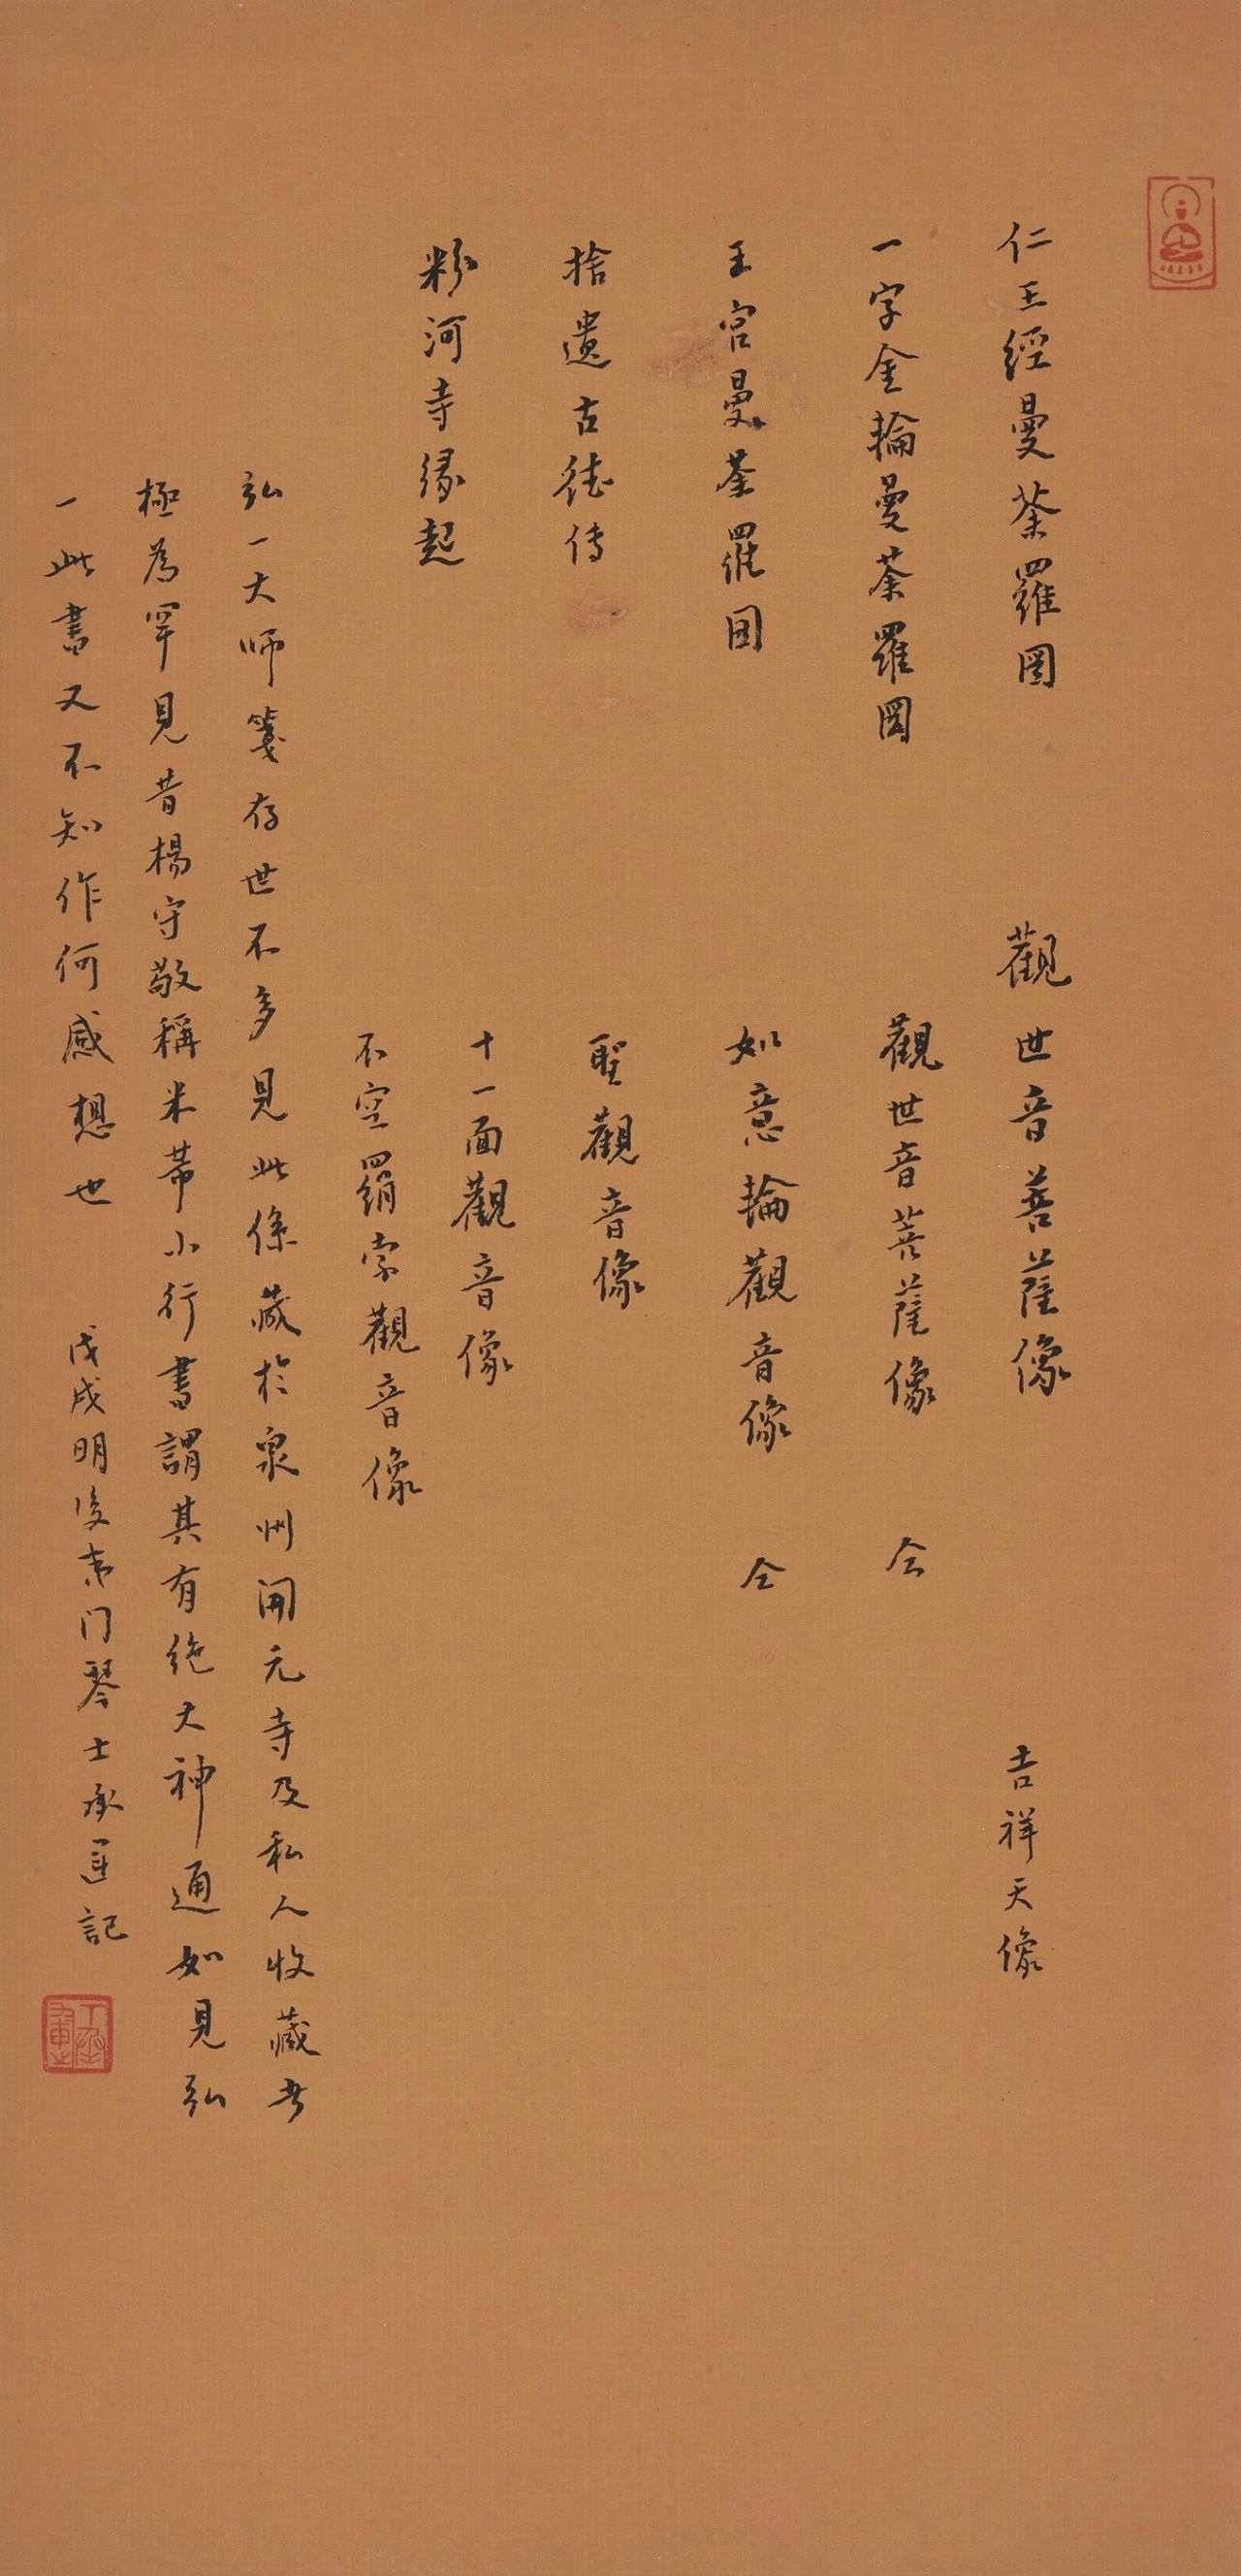 仁王經曼荼羅图
觀世音菩薩像
吉祥天像
一字金輪曼荼羅图
觀世音菩薩像 仝
王宫曼荼羅图
如意輪觀音像 仝
捨遺古徳传
聖觀音像
粉河寺缘起
十一面觀音像
不空羂索觀音像
弘一大师箋存世不多見此係藏於泉州開元寺及私人收藏者
極為罕見昔楊守敬稱米芾小行書謂其有绝大神通如見弘
一此書又不知作何感想也
戊戌明後東门琴士承運記